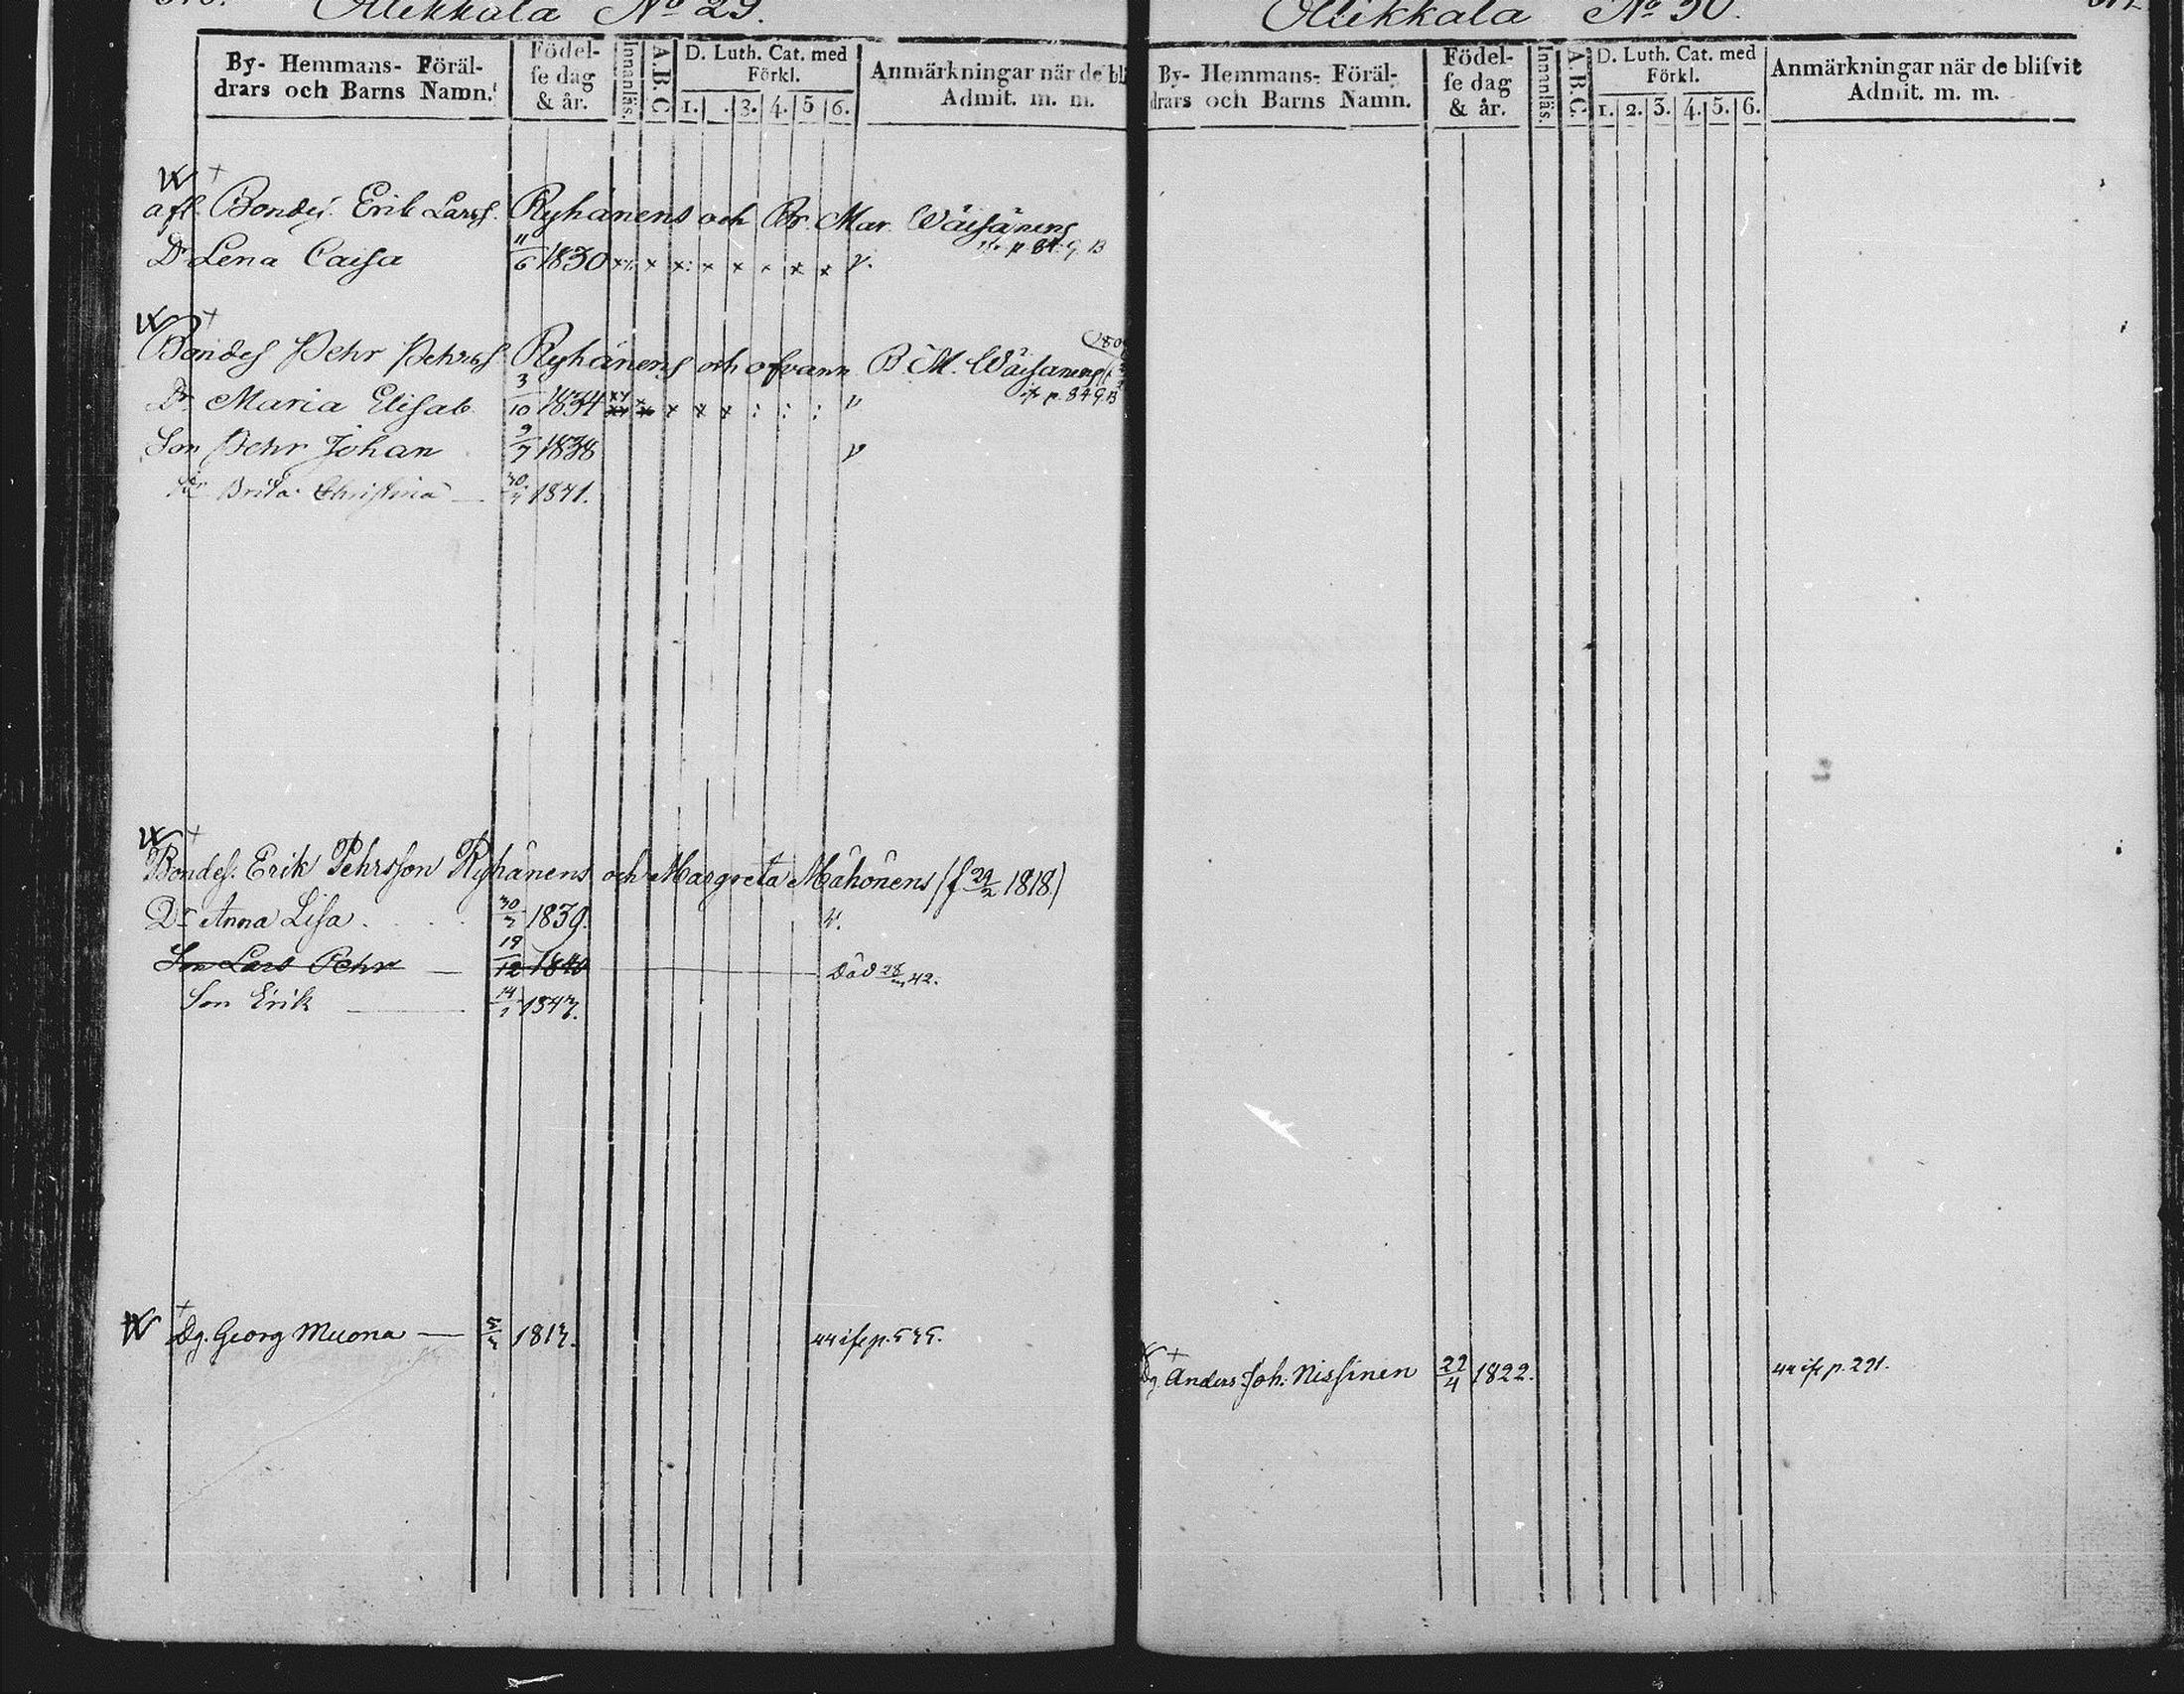 Ollikkala No 29.
By- Hemmans- Föräl-
drars och Barns Namn.
Födel-
se dag
& år.
Innanläs.
A.B.C
D. Luth. Cat. med
Förkl.
1. 3. 4. 5 6.
Anmärkningar när de bli
Admit. m. m.
afl. Bondes. Erik Larss. Ryhänens och Br. Mar. Wäisänens
p. 849 B
Dr Lena Caisa 11/6 1830
Bondes Pehr Pehrss. Ryhänens och ofvann B M. Wäisänens
p. 849 B
Dr Maria Elisab. 3/10 1834
Son Pehr Johan 9/7 1838
Dr Brita Christina 1841.
Bondes. Erik Pehrsson Ryhänens och Margreta Mähönens (f 1818)
Dr Anna Lisa 1839.
Son Lars Pehr 19/12 1840 Död 42.
Son Erik
Dg. Georg Muona
Ollikkala No 30.
By- Hemmans- Föräl-
drars och Barns Namn.
Födel-
se dag
& år.
Innanläs.
A.B.C.
D. Luth. Cat. med
Förkl.
1. 2. 3. 4. 5. 6.
Anmärkningar när de blifvit
Admit. m. m.
Dg Anders Joh: Nissinen 22/4 1822.